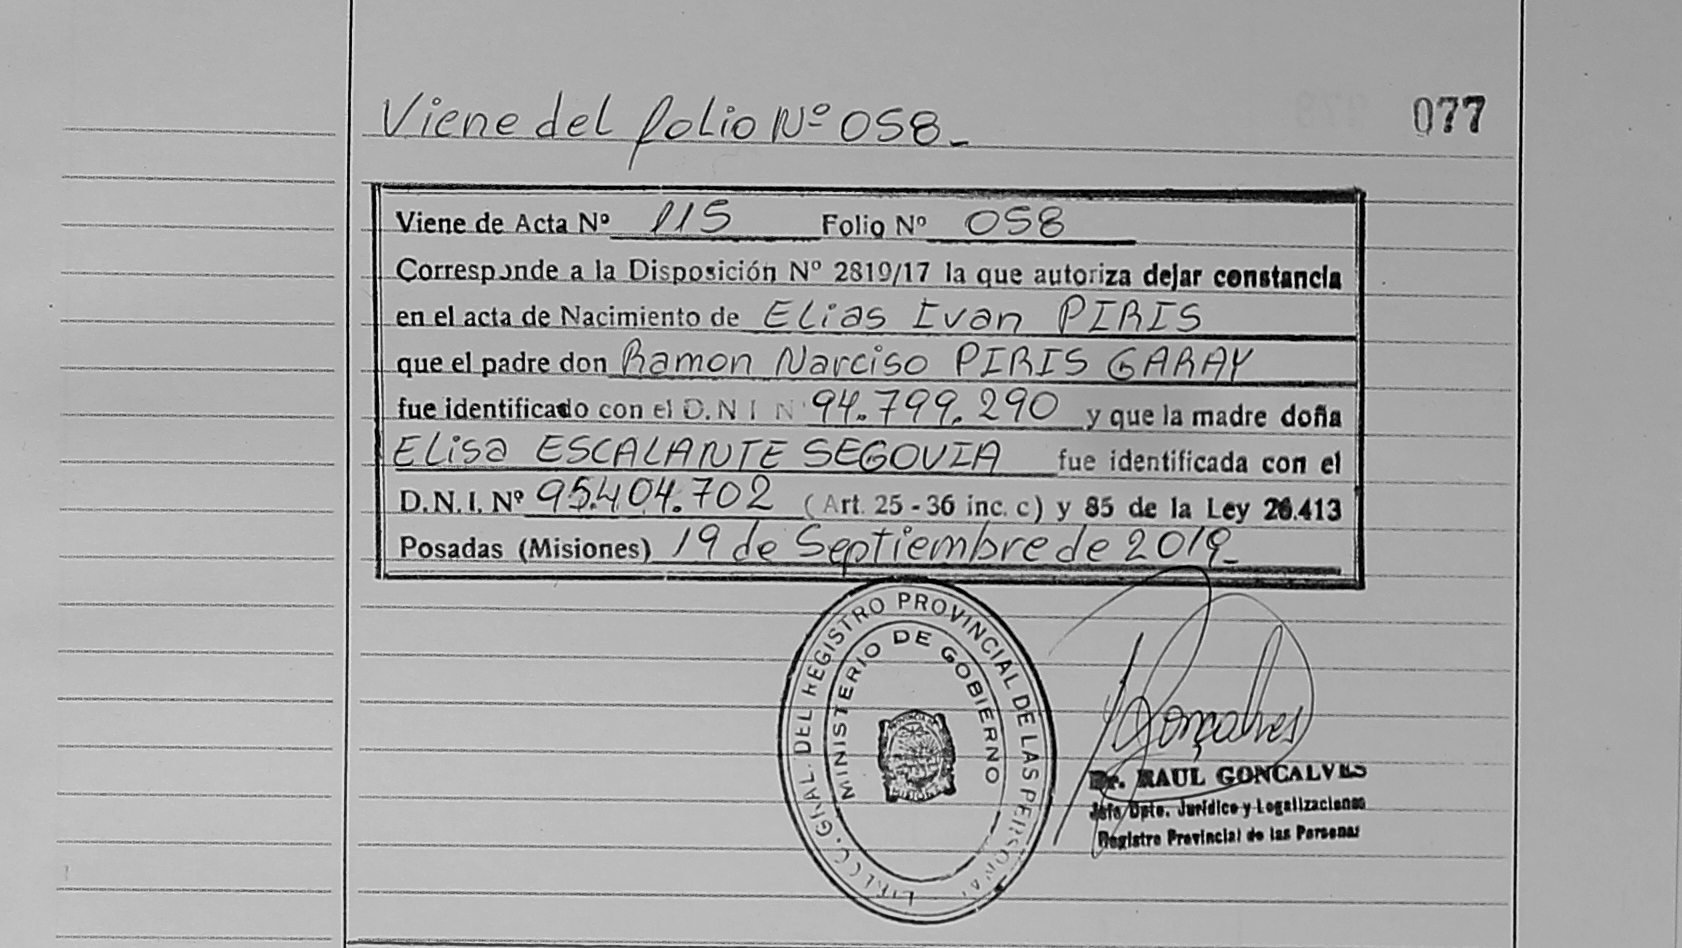 Viene del folio Nº 058_
077
Viene de Acta Nº 115 Folio Nº 058
Corresponde a la Disposición Nº 2819/17 la que autoriza dejar constancia
en el acta de Nacimiento de Elias Ivan PIRIS
que el padre don Ramon Narciso PIRIS GARAY
fue identificado con el D.N I N 94.799.290 y que la madre doña
Elisa ESCALANTE SEGOVIA fue identificada con el
D.N.I. Nº 95.404.702 (Art. 25 - 36 inc. c) y 85 de la Ley 26.413
Posadas (Misiones) 19 de Septiembre de 2019_
GRAL. DEL REGISTRO PROVINCIAL DE LAS PERSONAS
MINISTERIO DE GOBIERNO
MISIONES
Gonçalves
Dr. RAUL GONCALVES
Jefe Dpto. Jurídico y Legalizaciones
Registro Provincial de las Personas